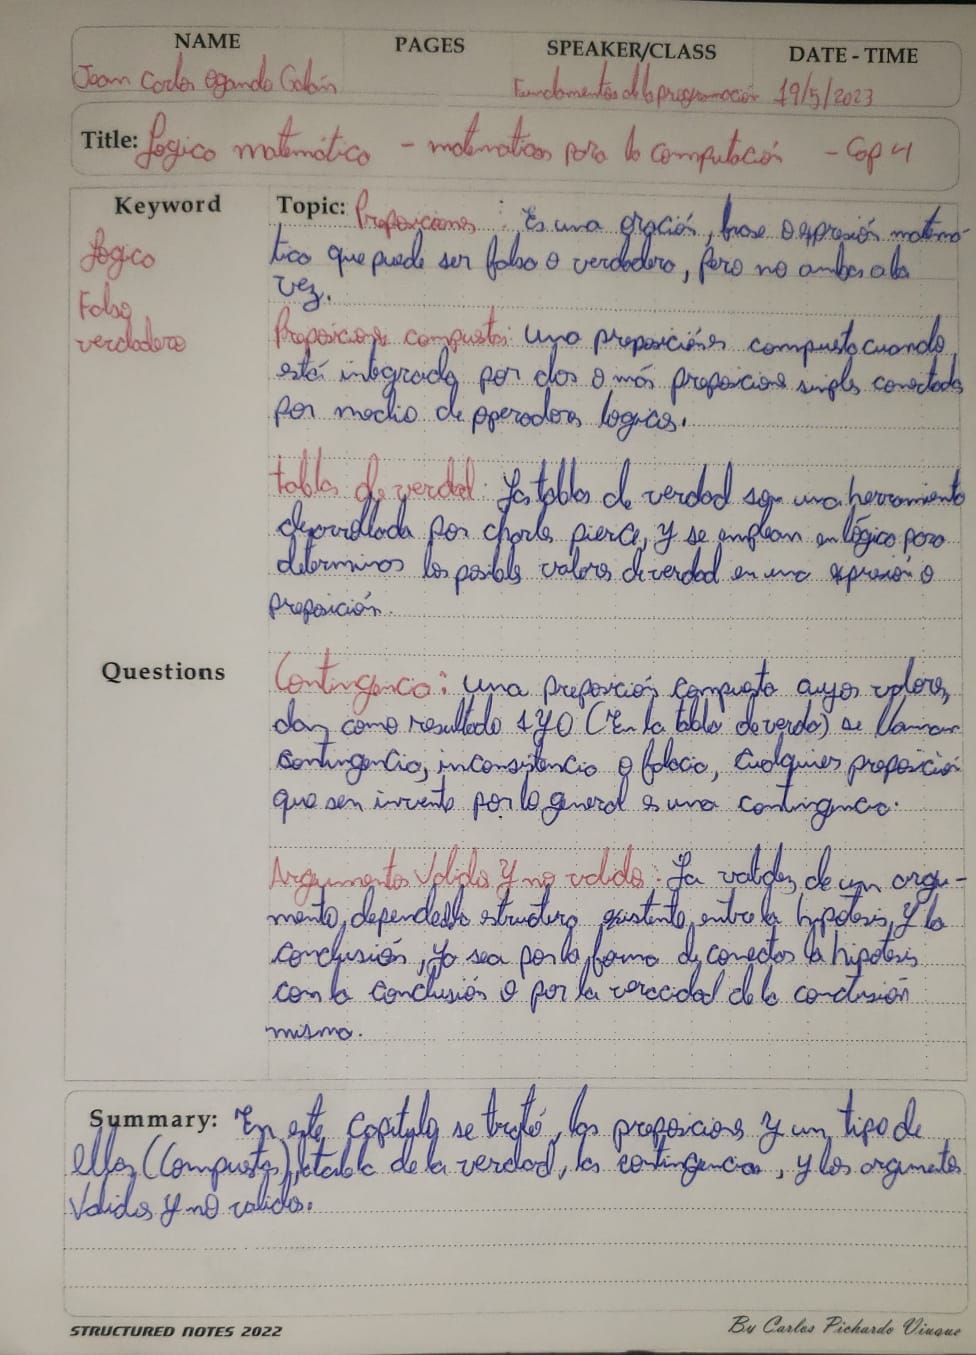 NAME PAGES SPEAKER/CLASS DATE - TIME
Jean Carlos Ogando Galán Fundamentos de la programación 19/5/2023
Title: Logica matemática - matematicas para la computación - Cap 4
Keyword
Logica
Falso
verdadero
Topic: Proposiciones : Es una oración, frase o expresión matemá-
tica que puede ser falso o verdadero, pero no ambas a la
vez.
Proposiciones compuestas: una proposición es compuesta cuando
está integrada por dos o más proposiciones simples conectadas
por medio de operadores logicos.
tablas de verdad: Las tablas de verdad son una herramienta
desarrollada por charles pierce, y se emplean en lógica para
determinar los posibles valores de verdad en una expresión o
proposición.
Questions
Contingencia: una proposición compuesta cuyos valores,
dan como resultado 1 y 0 (En la tabla de verdad) se llaman
contingencia, inconsistencia o falacia, cualquier proposición
que sen invente por lo general es una contingencia.
Argumentos validos y no validos: La validez de un argu-
mento, depende de la estructura existente entre la hipotesis, y la
conclusión, ya sea por la forma de conectar la hipotesis
con la conclusión o por la veracidad de la conclusión
misma.
Summary: En este capitulo se trató, las proposiciones y un tipo de
ellas (Compuestas), tabla de la verdad, las contingencias, y los argumentos
validos y no validos.
STRUCTURED NOTES 2022 By Carlos Pichardo Viuque